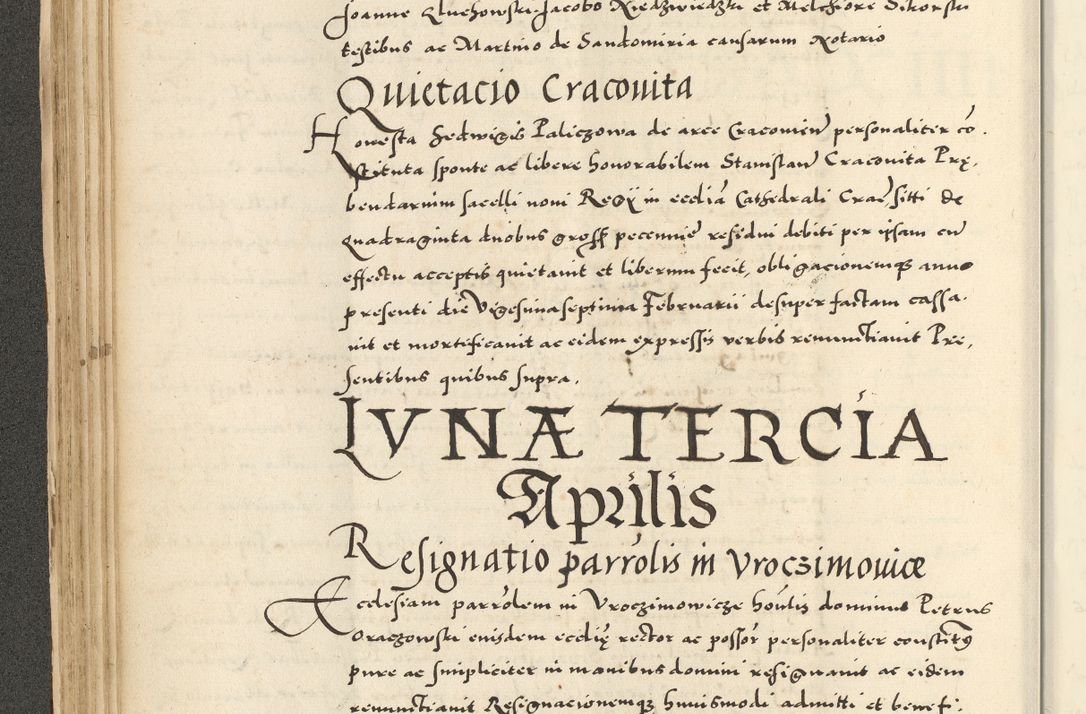 Joanne Gluchowski Jacobo Niedzwiedzki et Melchiore Sikorski
testibus ac Martino de Sandomiria causarum Notario
Quietacio Cracouita
Honesta Hedwigis Paliczowa de arce Cracouien personaliter cō.
stituta sponte ac libere honorabilem Stanislaū Cracouita Prę.
bendarium sacelli noui Regÿ in ecclīa Cathedrali Crac̄ sitti de
quadraginta duobus gross pecunie residui debiti per ipsam cū
effectu acceptis quietauit et liberum fecit, obligacionemq anno
presenti die Vigesimaseptima Februarii desuper factam cassa.
uit et mortificauit ac eidem expressis verbis renunctiauit Pre.
sentibus quibus supra.
LVNÆ TERCIA
Aprilis
Resignatio parrōlis in Vroczimouice
Ecclesiam parrōlem in Vroczimowicze hoūlis dominus Petrus
Oraczowski eiusdem ecclię rector ac possōr personaliter constitꝰ
pure ac simpliciter in manibus domini resignauit ac eidem
renunctiauit Resignacionemq huiusmodi admitti et benefi.